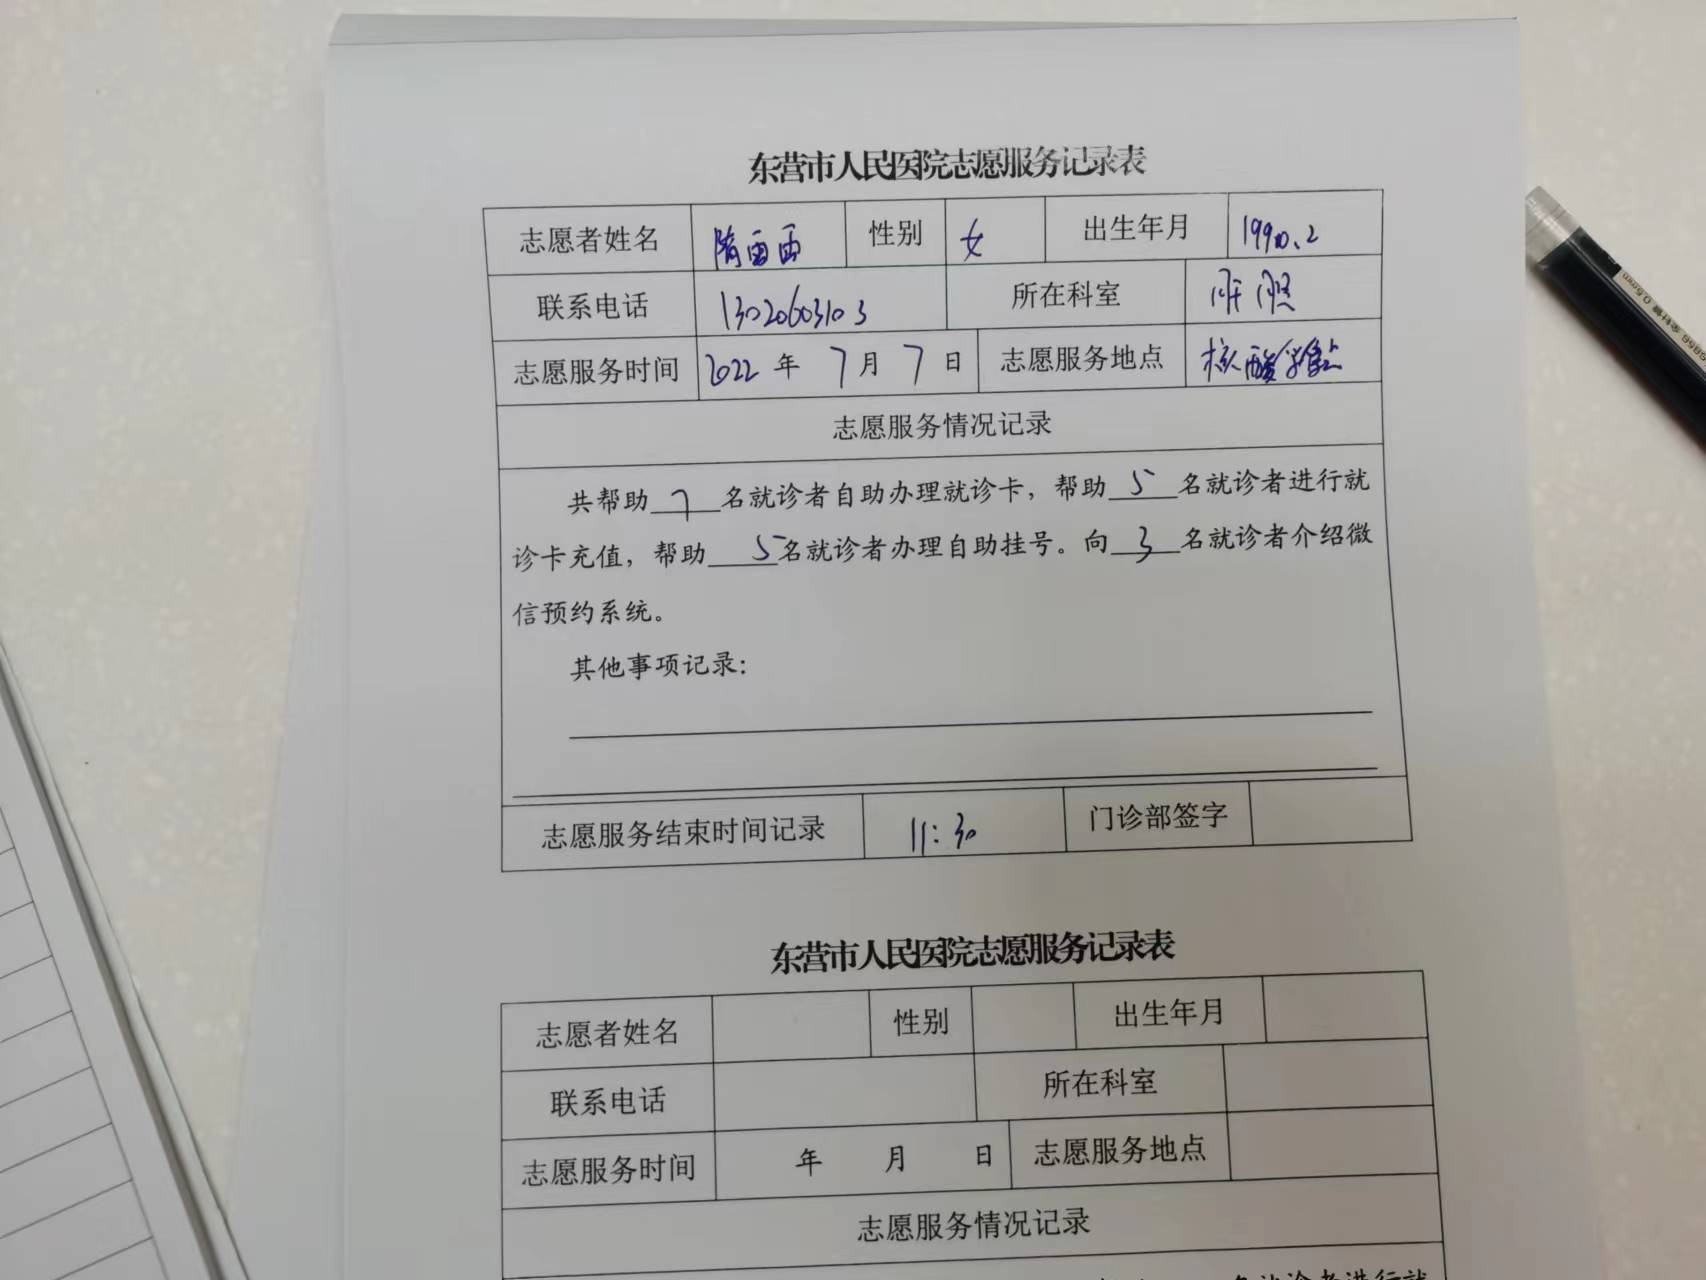 东营市人民医院志愿服务记录表
志愿者姓名 隋雷雷 性别 女 出生年月 1990.2
联系电话 13020603103 所在科室
志愿服务时间 2022年 7月 7日 志愿服务地点 核酸
志愿服务情况记录
共帮助 7 名就诊者自助办理就诊卡，帮助 5 名就诊者进行就
诊卡充值，帮助 5 名就诊者办理自助挂号。向 3 名就诊者介绍微
信预约系统。
其他事项记录：
志愿服务结束时间记录 11:30 门诊部签字
东营市人民医院志愿服务记录表
志愿者姓名 性别 出生年月
联系电话 所在科室
志愿服务时间 年 月 日 志愿服务地点
志愿服务情况记录
名就诊者进行就